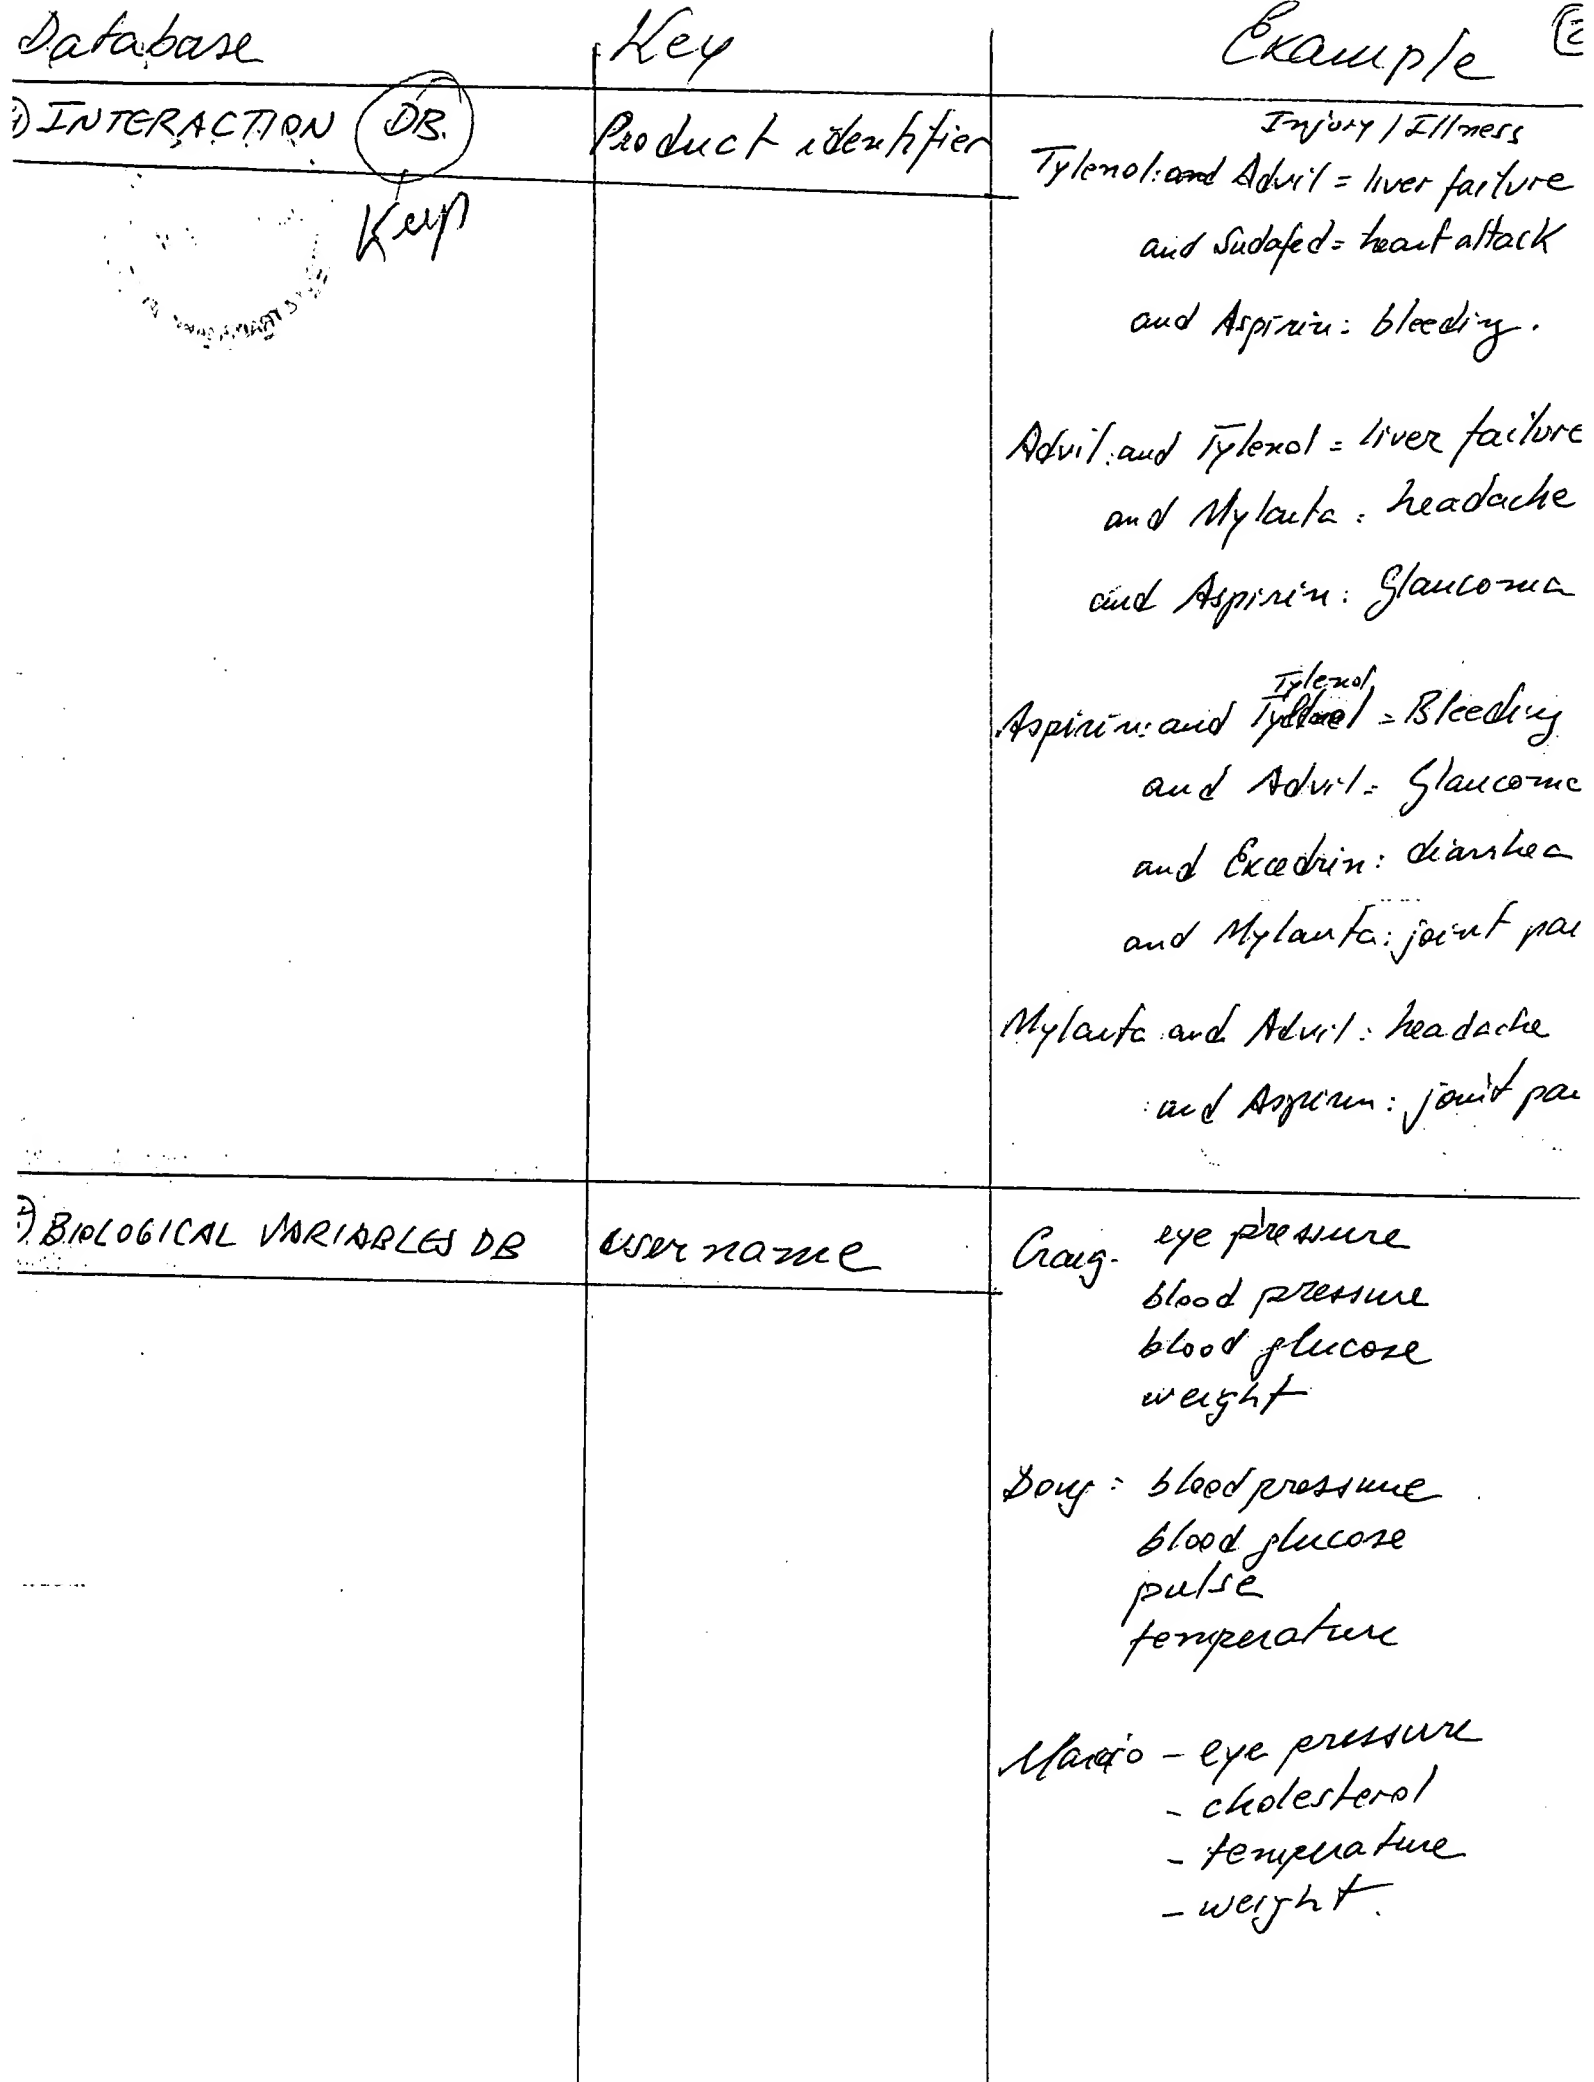 Database Key Example
INTERACTION DB. Product identifier
Injury / Illness
Tylenol: and Advil = liver failure
and Sudafed = heart attack
and Aspirin: bleeding.
Advil: and Tylenol = liver failure
and Mylanta: headache
and Aspirin: Glaucoma
Tylenol
Aspirin: and = Bleeding
and Advil = Glaucoma
and Excedrin: diarrhea
and Mylanta: joint pai
Mylanta and Advil: headache
: and Aspirin: joint pai
BIOLOGICAL VARIABLES DB username
Craig - eye pressure
blood pressure
blood glucose
weight
Doug: blood pressure
blood glucose
pulse
temperature
- eye pressure
- cholesterol
- temperature
- weight.